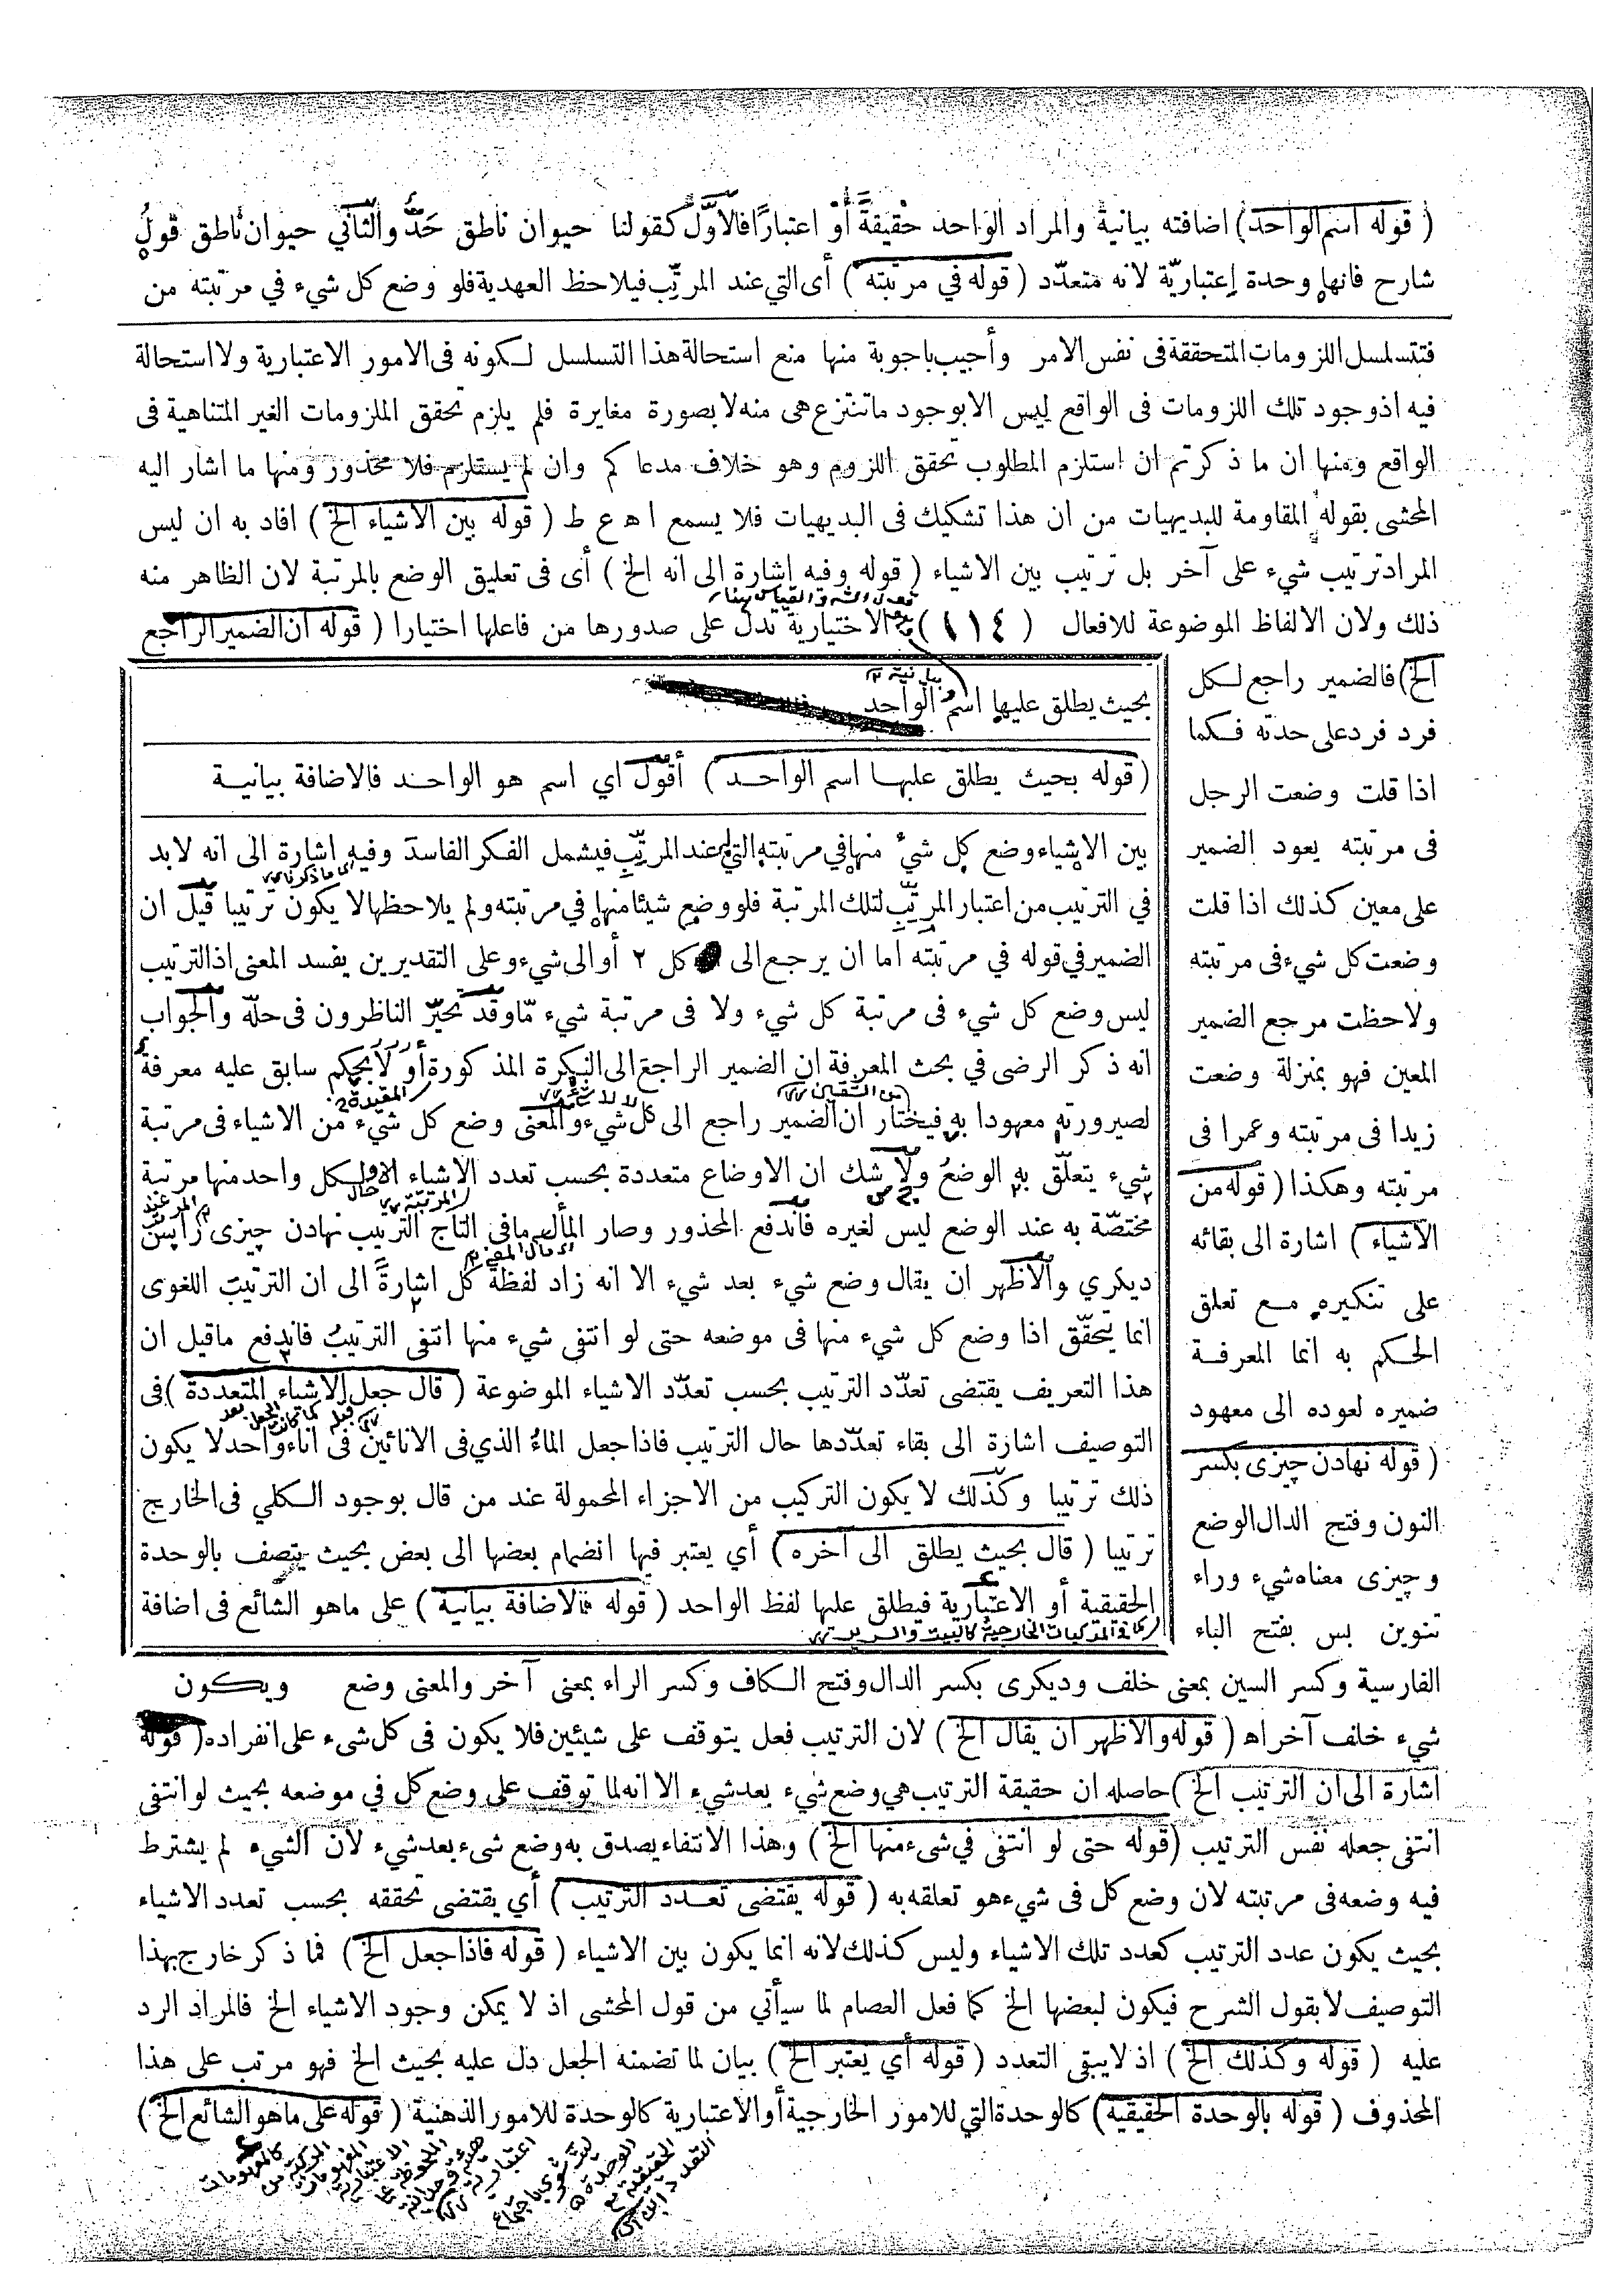 ( قوله اسم الواحد ) اضافته بيانية والمراد الواحد حقيقةً أوْ اعتبارًا فالأوَّل كقولنا حيوان ناطق حَدٌّ والثاني حيوان ناطق قولٌ
شارح فانها وحدة إعتباريّة لانه متعدّد ( قوله في مرتبته ) أى التي عند المرتِّب فيلاحظ العهدية فلو وضع كل شيء في مرتبته من
فتتسلسل اللزومات المتحققة فى نفس الامر وأجيب باجوبة منها منع استحالة هذا التسلسل لكونه فى الامور الاعتبارية ولا استحالة
فيه اذ وجود تلك اللزومات فى الواقع ليس الا بوجود ما تنتزع هى منه لا بصورة مغايرة فلم يلزم تحقق الملزومات الغير المتناهية فى
الواقع ومنها ان ما ذكرتم ان استلزم المطلوب تحقق اللزوم وهو خلاف مدعاكم وان لم يستلزم فلا محذور ومنها ما اشار اليه
المحشى بقوله المقاومة للبديهيات من ان هذا تشكيك فى البديهيات فلا يسمع اه ع ط ( قوله بين الاشياء الخ ) افاد به ان ليس
المراد ترتيب شيء على آخر بل ترتيب بين الاشياء ( قوله وفيه اشارة الى انه الخ ) أى فى تعليق الوضع بالمرتبة لان الظاهر منه
ذلك ولان الالفاظ الموضوعة للافعال ( ١١٤ ) الاختيارية تدل على صدورها من فاعلها اختيارا ( قوله ان الضمير الراجع
الخ ) فالضمير راجع لكل
فرد فرد على حدته فكما
اذا قلت وضعت الرجل
فى مرتبته يعود الضمير
على معين كذلك اذا قلت
وضعت كل شيء فى مرتبته
ولاحظت مرجع الضمير
المعين فهو بمنزلة وضعت
زيدا فى مرتبته وعمرا فى
مرتبته وهكذا ( قوله من
الاشياء ) اشارة الى بقائه
على تنكيره مع تعلق
الحكم به انما المعرفة
ضميره لعوده الى معهود
( قوله نهادن چيزى بكسر
النون وفتح الدال الوضع
وچيزى معناه شيء وراء
تنوين بس بفتح الباء
بحيث يطلق عليها اسمُ الواحد
بيانية
( قوله بحيث يطلق عليها اسم الواحد ) أقول اي اسم هو الواحد فالاضافة بيانية
بين الاشياء وضع كل شيء منها في مرتبته التي عند المرتِّب فيشمل الفكر الفاسد وفيه اشارة الى انه لابد
في الترتيب من اعتبار المرتِّب لتلك المرتبة فلو وضع شيئا منها في مرتبته ولم يلاحظها لا يكون ترتيبا قيل ان
الضمير في قوله في مرتبته اما ان يرجع الى كل ٢ أو الى شيء وعلى التقديرين يفسد المعنى اذ الترتيب
ليس وضع كل شيء فى مرتبة كل شيء ولا فى مرتبة شيء مّا وقد تحيّر الناظرون فى حلّه والجواب
انه ذكر الرضى في بحث المعرفة ان الضمير الراجع الى النكرة المذكورة أولا بحكم سابق عليه معرفة
لصيرورته معهودا به فيختار ان الضمير راجع الى كل شيء والمعنى وضع كل شيء من الاشياء فى مرتبة
شيء يتعلّق به الوضعُ ولا شك ان الاوضاع متعددة بحسب تعدد الاشياء لكل واحد منها مرتبة
مختصّة به عند الوضع ليس لغيره فاندفع المحذور وصار المأل ما في التاج الترتيب نهادن چيزى را پس
ديكري والاظهر ان يقال وضع شيء بعد شيء الا انه زاد لفظة كل اشارةً الى ان الترتيب اللغوى
انما يتحقّق اذا وضع كل شيء منها فى موضعه حتى لو انتفى شيء منها انتفى الترتيبُ فاندفع ماقيل ان
هذا التعريف يقتضى تعدّد الترتيب بحسب تعدّد الاشياء الموضوعة ( قال جعل الاشياء المتعددة ) فى
التوصيف اشارة الى بقاء تعدّدها حال الترتيب فاذا جعل الماءُ الذي فى الانائين فى اناء واحد لا يكون
ذلك ترتيبا وكذلك لا يكون التركيب من الاجزاء المحمولة عند من قال بوجود الكلي فى الخارج
ترتيبا ( قال بحيث يطلق الى آخره ) أي يعتبر فيها انضمام بعضها الى بعض بحيث يتصف بالوحدة
الحقيقية أو الاعتبارية فيطلق عليها لفظ الواحد ( قوله فالاضافة بيانية ) على ماهو الشائع فى اضافة
كما في المركبات الخارجية كالبيت والسرير
الفارسية وكسر السين بمعنى خلف وديكرى بكسر الدال وفتح الكاف وكسر الراء بمعنى آخر والمعنى وضع ويكون
شيء خلف آخر اه ( قوله والاظهر ان يقال الخ ) لان الترتيب فعل يتوقف على شيئين فلا يكون فى كل شيء على انفراده ( قوله
اشارة الى ان الترتيب الخ ) حاصله ان حقيقة الترتيب هي وضع شيء بعد شيء الا انه لما توقف على وضع كل في موضعه بحيث لو انتفى
انتفى جعله نفس الترتيب ( قوله حتى لو انتفى في شيء منها الخ ) وهذا الانتفاء يصدق به وضع شيء بعد شيء لان الشيء لم يشترط
فيه وضعه فى مرتبته لان وضع كل فى شيء هو تعلقه به ( قوله يقتضى تعدد الترتيب ) أي يقتضى تحققه بحسب تعدد الاشياء
بحيث يكون عدد الترتيب كعدد تلك الاشياء وليس كذلك لانه انما يكون بين الاشياء ( قوله فاذا جعل الخ ) فما ذكر خارج بهذا
التوصيف لا بقول الشرح فيكون لبعضها الخ كما فعل العصام لما سيأتي من قول المحشى اذ لا يمكن وجود الاشياء الخ فالمراد الرد
عليه ( قوله وكذلك الخ ) اذ لايبقى التعدد ( قوله أي يعتبر الخ ) بيان لما تضمنه الجعل دل عليه بحيث الخ فهو مرتب على هذا
المحذوف ( قوله بالوحدة الحقيقية ) كالوحدة التي للامور الخارجية أو الاعتبارية كالوحدة للامور الذهنية ( قوله على ماهو الشائع الخ )